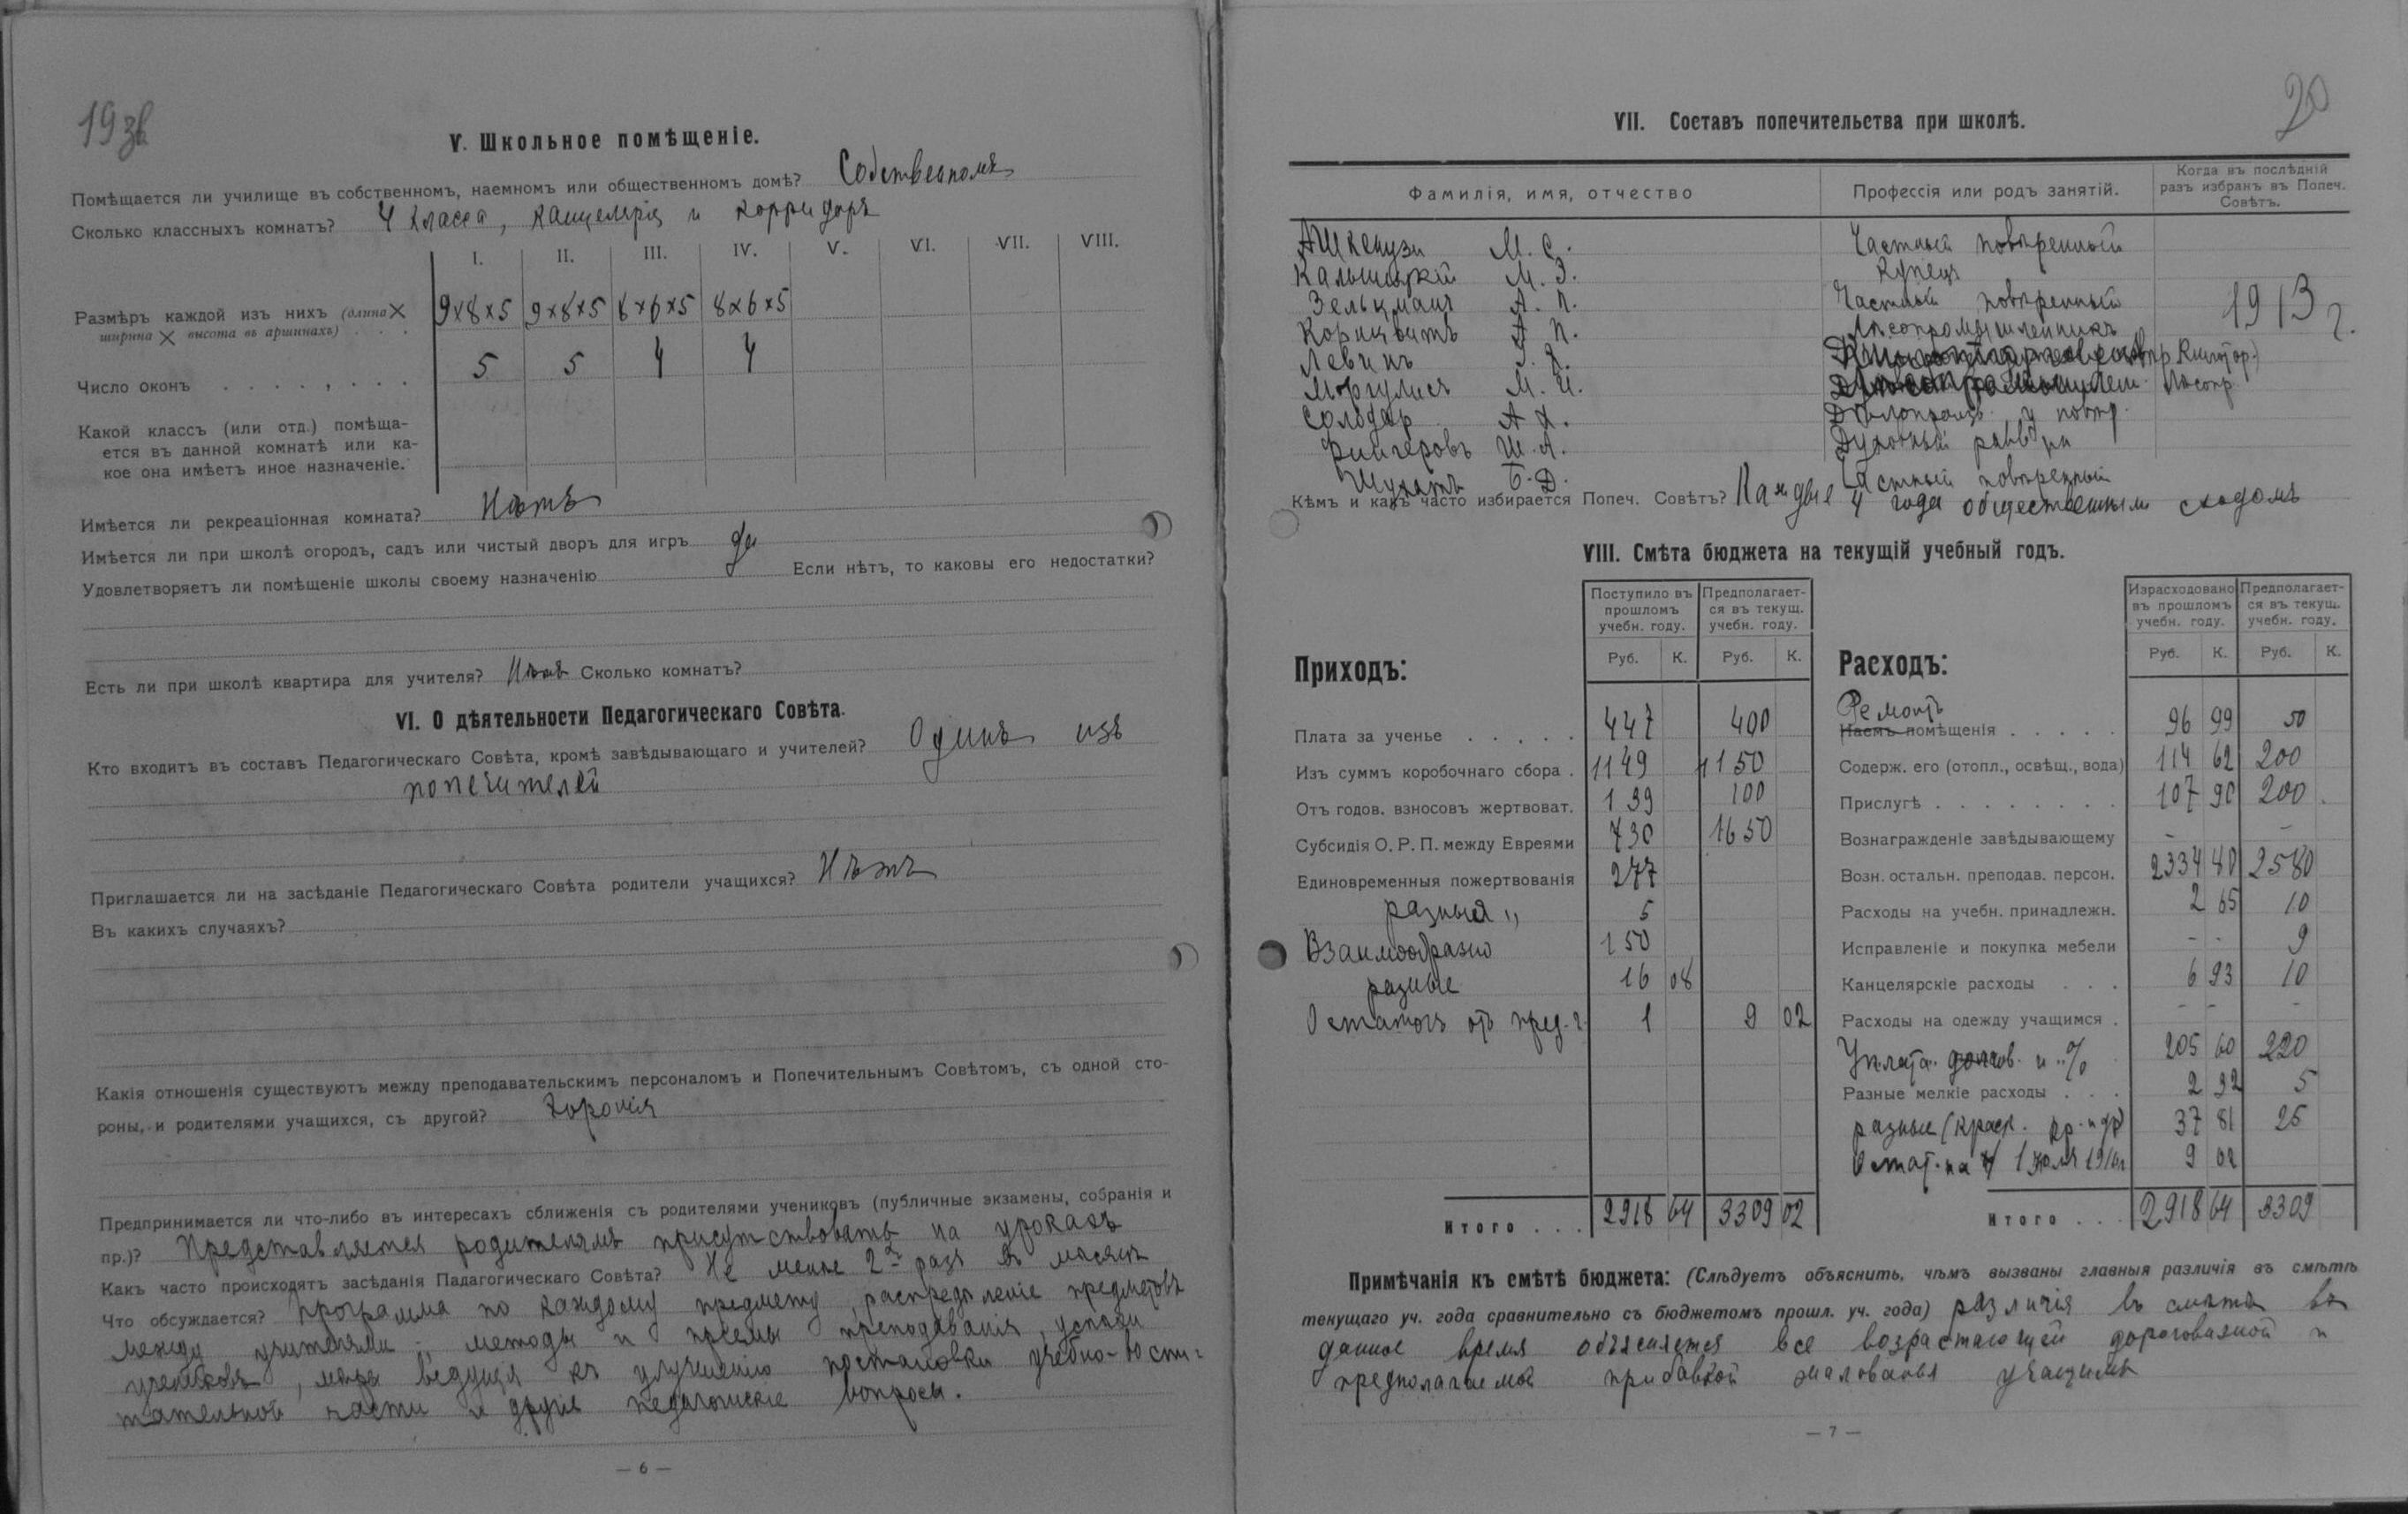 19 об
V. Школьное помѣщеніе.
Помѣщается ли училище въ собственномъ, наемномъ или общественномъ домѣ? Собственномъ
Сколько классныхъ комнатъ? 4 класса, канцелярія и корридоръ
I. II. III. IV. V. VI. VII. VIII.
Размѣръ каждой изъ нихъ (длина ×
ширина × высота въ аршинахъ) . . .
9×8×5 9×8×5 8×6×5 8×6×5
Число оконъ . . . . . . . 5 5 4 4
Какой классъ (или отд.) помѣща-
ется въ данной комнатѣ или ка-
кое она имѣетъ иное назначеніе.
Имѣется ли рекреаціонная комната? Нѣтъ
Имѣется ли при школѣ огородъ, садъ или чистый дворъ для игръ да
Удовлетворяетъ ли помѣщеніе школы своему назначенію Если нѣтъ, то каковы его недостатки?
Есть ли при школѣ квартира для учителя? Нѣтъ Сколько комнатъ?
VI. О дѣятельности Педагогическаго Совѣта.
Кто входитъ въ составъ Педагогическаго Совѣта, кромѣ завѣдывающаго и учителей? Одинъ изъ
попечителей
Приглашается ли на засѣданіе Педагогическаго Совѣта родители учащихся? Нѣтъ
Въ какихъ случаяхъ?
Какія отношенія существуютъ между преподавательскимъ персоналомъ и Попечительнымъ Совѣтомъ, съ одной сто-
роны, и родителями учащихся, съ другой? Хорошія
Предпринимается ли что-либо въ интересахъ сближенія съ родителями учениковъ (публичные экзамены, собранія и
пр.)? Представляется родителямъ присутствовать на урокахъ
Какъ часто происходятъ засѣданія Падагогическаго Совѣта? Не менѣе 2-хъ разъ въ мѣсяцъ
Что обсуждается? Программа по каждому предмету, распредѣленіе предметовъ
между учителями; методы и пріемы преподаванія, успѣхи
учениковъ, мѣры ведущія къ улучшенію постановки учебно-воспи-
тательной части и другіе педагогическіе вопросы.
— 6 —
20
VII. Составъ попечительства при школѣ.
Фамилія, имя, отчество Профессія или родъ занятій. Когда въ послѣдній
разъ избранъ въ Попеч.
Совѣтъ.
Ашкенузи М. С. Частный повѣренный
М. Э. Купецъ
Зелькманъ А. П. Частный повѣренный 1913 г.
А. П. Лѣсопромышленникъ
Левинъ
М. И. Лѣсопр.
Солодарь А. Х. Дѣлопроизв. у повѣр.
Фингеровъ Ш. Л. Духовный раввинъ
Б. Д. Частный повѣренный
Кѣмъ и какъ часто избирается Попеч. Совѣтъ? Каждые 4 года общественнымъ сходомъ
VIII. Смѣта бюджета на текущій учебный годъ.
Приходъ: Поступило въ прошломъ учебн. году. Предполагает-ся въ текущ. учебн. году.
Руб. К. Руб. К.
Плата за ученье . . . . . 447 400
Изъ суммъ коробочнаго сбора . 1149 1150
Отъ годов. взносовъ жертвоват. 139 100
Субсидія О. Р. П. между Евреями 730 1650
Единовременныя пожертвованія 277
разныя „ 5
Взаимообразно 150
разные 16 08
Остатокъ отъ пред. г. 1 9 02
Итого . . . 2918 64 3309 02
Расходъ: Израсходовано въ прошломъ учебн. году. Предполагает-ся въ текущ. учебн. году.
Руб. К. Руб. К.
Ремонтъ
Наемъ помѣщенія . . . . . 96 99 50
Содерж. его (отопл., освѣщ., вода) 114 62 200
Прислугѣ . . . . . . . . 107 90 200
Вознагражденіе завѣдывающему – –
Возн. остальн. преподав. персон. 2334 40 2580
Расходы на учебн. принадлежн. 2 65 10
Исправленіе и покупка мебели - - 9
Канцелярскіе расходы . . . 6 93 10
Расходы на одежду учащимся . - - -
Уплата долгов. и % 205 60 220
Разные мелкіе расходы . . . 2 92 5
разные (краск. др. и др) 37 81 25
Остат. на 1 Іюля 1916 г 9 02
Итого . . . 2918 64 3309
Примѣчанія къ смѣтѣ бюджета: (Слѣдуетъ объяснить, чѣмъ вызваны главныя различія въ смѣтѣ
текущаго уч. года сравнительно съ бюджетомъ прошл. уч. года) различія въ смѣтѣ въ
данное время объясняется все возрастающей дороговизной и
предполагаемой прибавкой жалованья учащимъ
— 7 —